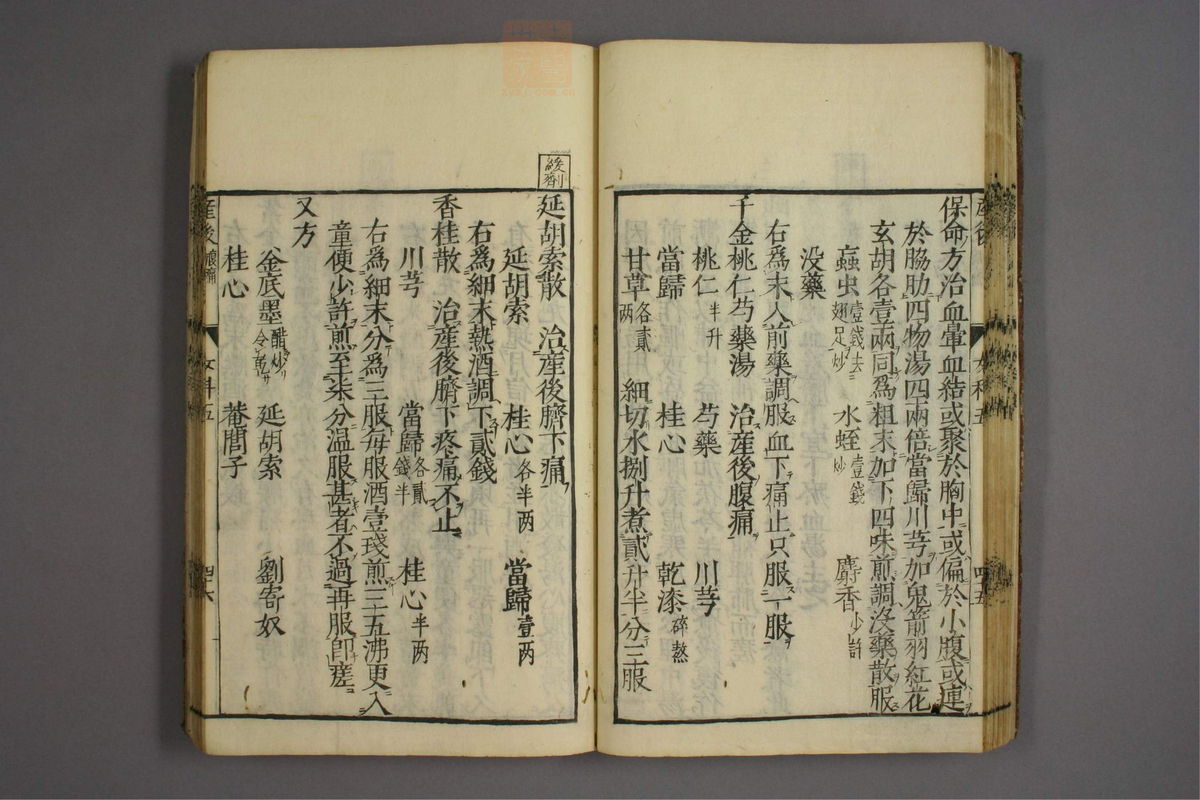 保命方治血暈血結或聚於胸中或偏於小腹或連
於脇肋四物湯四兩倍當歸川芎加鬼箭羽紅花
玄胡各壹兩同爲粗末加下四味煎調沒藥散服
蝱虫壹錢去翅足炒 水蛭壹錢炒 麝香少許
没藥
右爲末入前藥調服血下痛止只服一服
千金桃仁芍藥湯 治產後腹痛
桃仁半升 芍藥 川芎
當歸 桂心 乾漆碎熬
甘草各貳兩 細切水捌升煮貳升半分三服
產後 女科五 四十五
緩劑
延胡索散 治產後臍下痛
延胡索 桂心各半两 當歸壹两
右爲細末熱酒調下貳錢
香桂散 治產後臍下疼痛不止
川芎 當歸各貳錢半 桂心半两
右爲細末分爲三服每服酒壹琖煎三五沸更入
童便少許煎至柒分温服甚者不過再服卽瘥
又方
釡底墨醋炒令乾 延胡索 劉寄奴
桂心 菴䕡子
產後腹痛 女科五 四十六